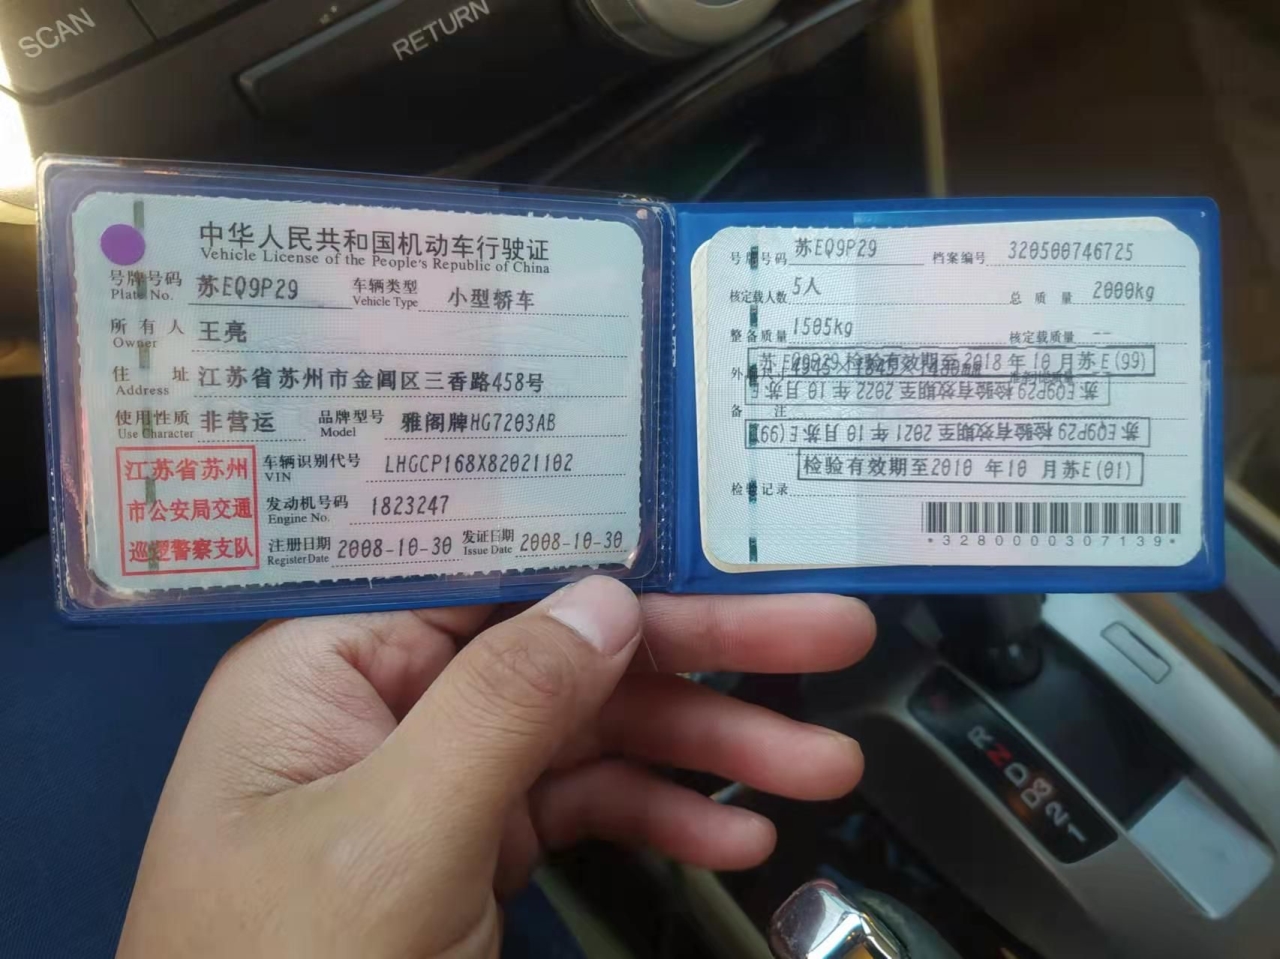 SCAN
RETURN
中华人民共和国机动车行驶证
Vehicle License of the People's Republic of China
号牌号码 苏EQ9P29 车辆类型 小型轿车
Plate No. Vehicle Type
所有人 王亮
Owner
住址 江苏省苏州市金阊区三香路458号
Address
使用性质 非营运 品牌型号 雅阁牌HG7203AB
Use Character Model
江苏省苏州
市公安局交通
巡逻警察支队
车辆识别代号 LHGCP168X82021102
VIN
发动机号码 1823247
Engine No.
注册日期 2008-10-30 发证日期 2008-10-30
Register Date Issue Date
号牌号码 苏EQ9P29 档案编号 320500746725
核定载人数 5人 总质量 2000kg
整备质量 1505kg 核定载质量 --
苏EQ9P29 检验有效期至2018年10月苏E(99)
苏EQ9P29 检验有效期至2022年10月苏E
备注
苏EQ9P29 检验有效期至2021年10月苏E(99)
检验有效期至2010年10月苏E(01)
检验记录
*3280000307139*
R
N
D
D3
2
1